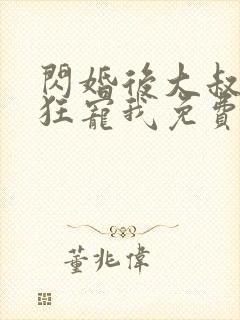 閃婚後大叔
狂寵我免費
董兆偉